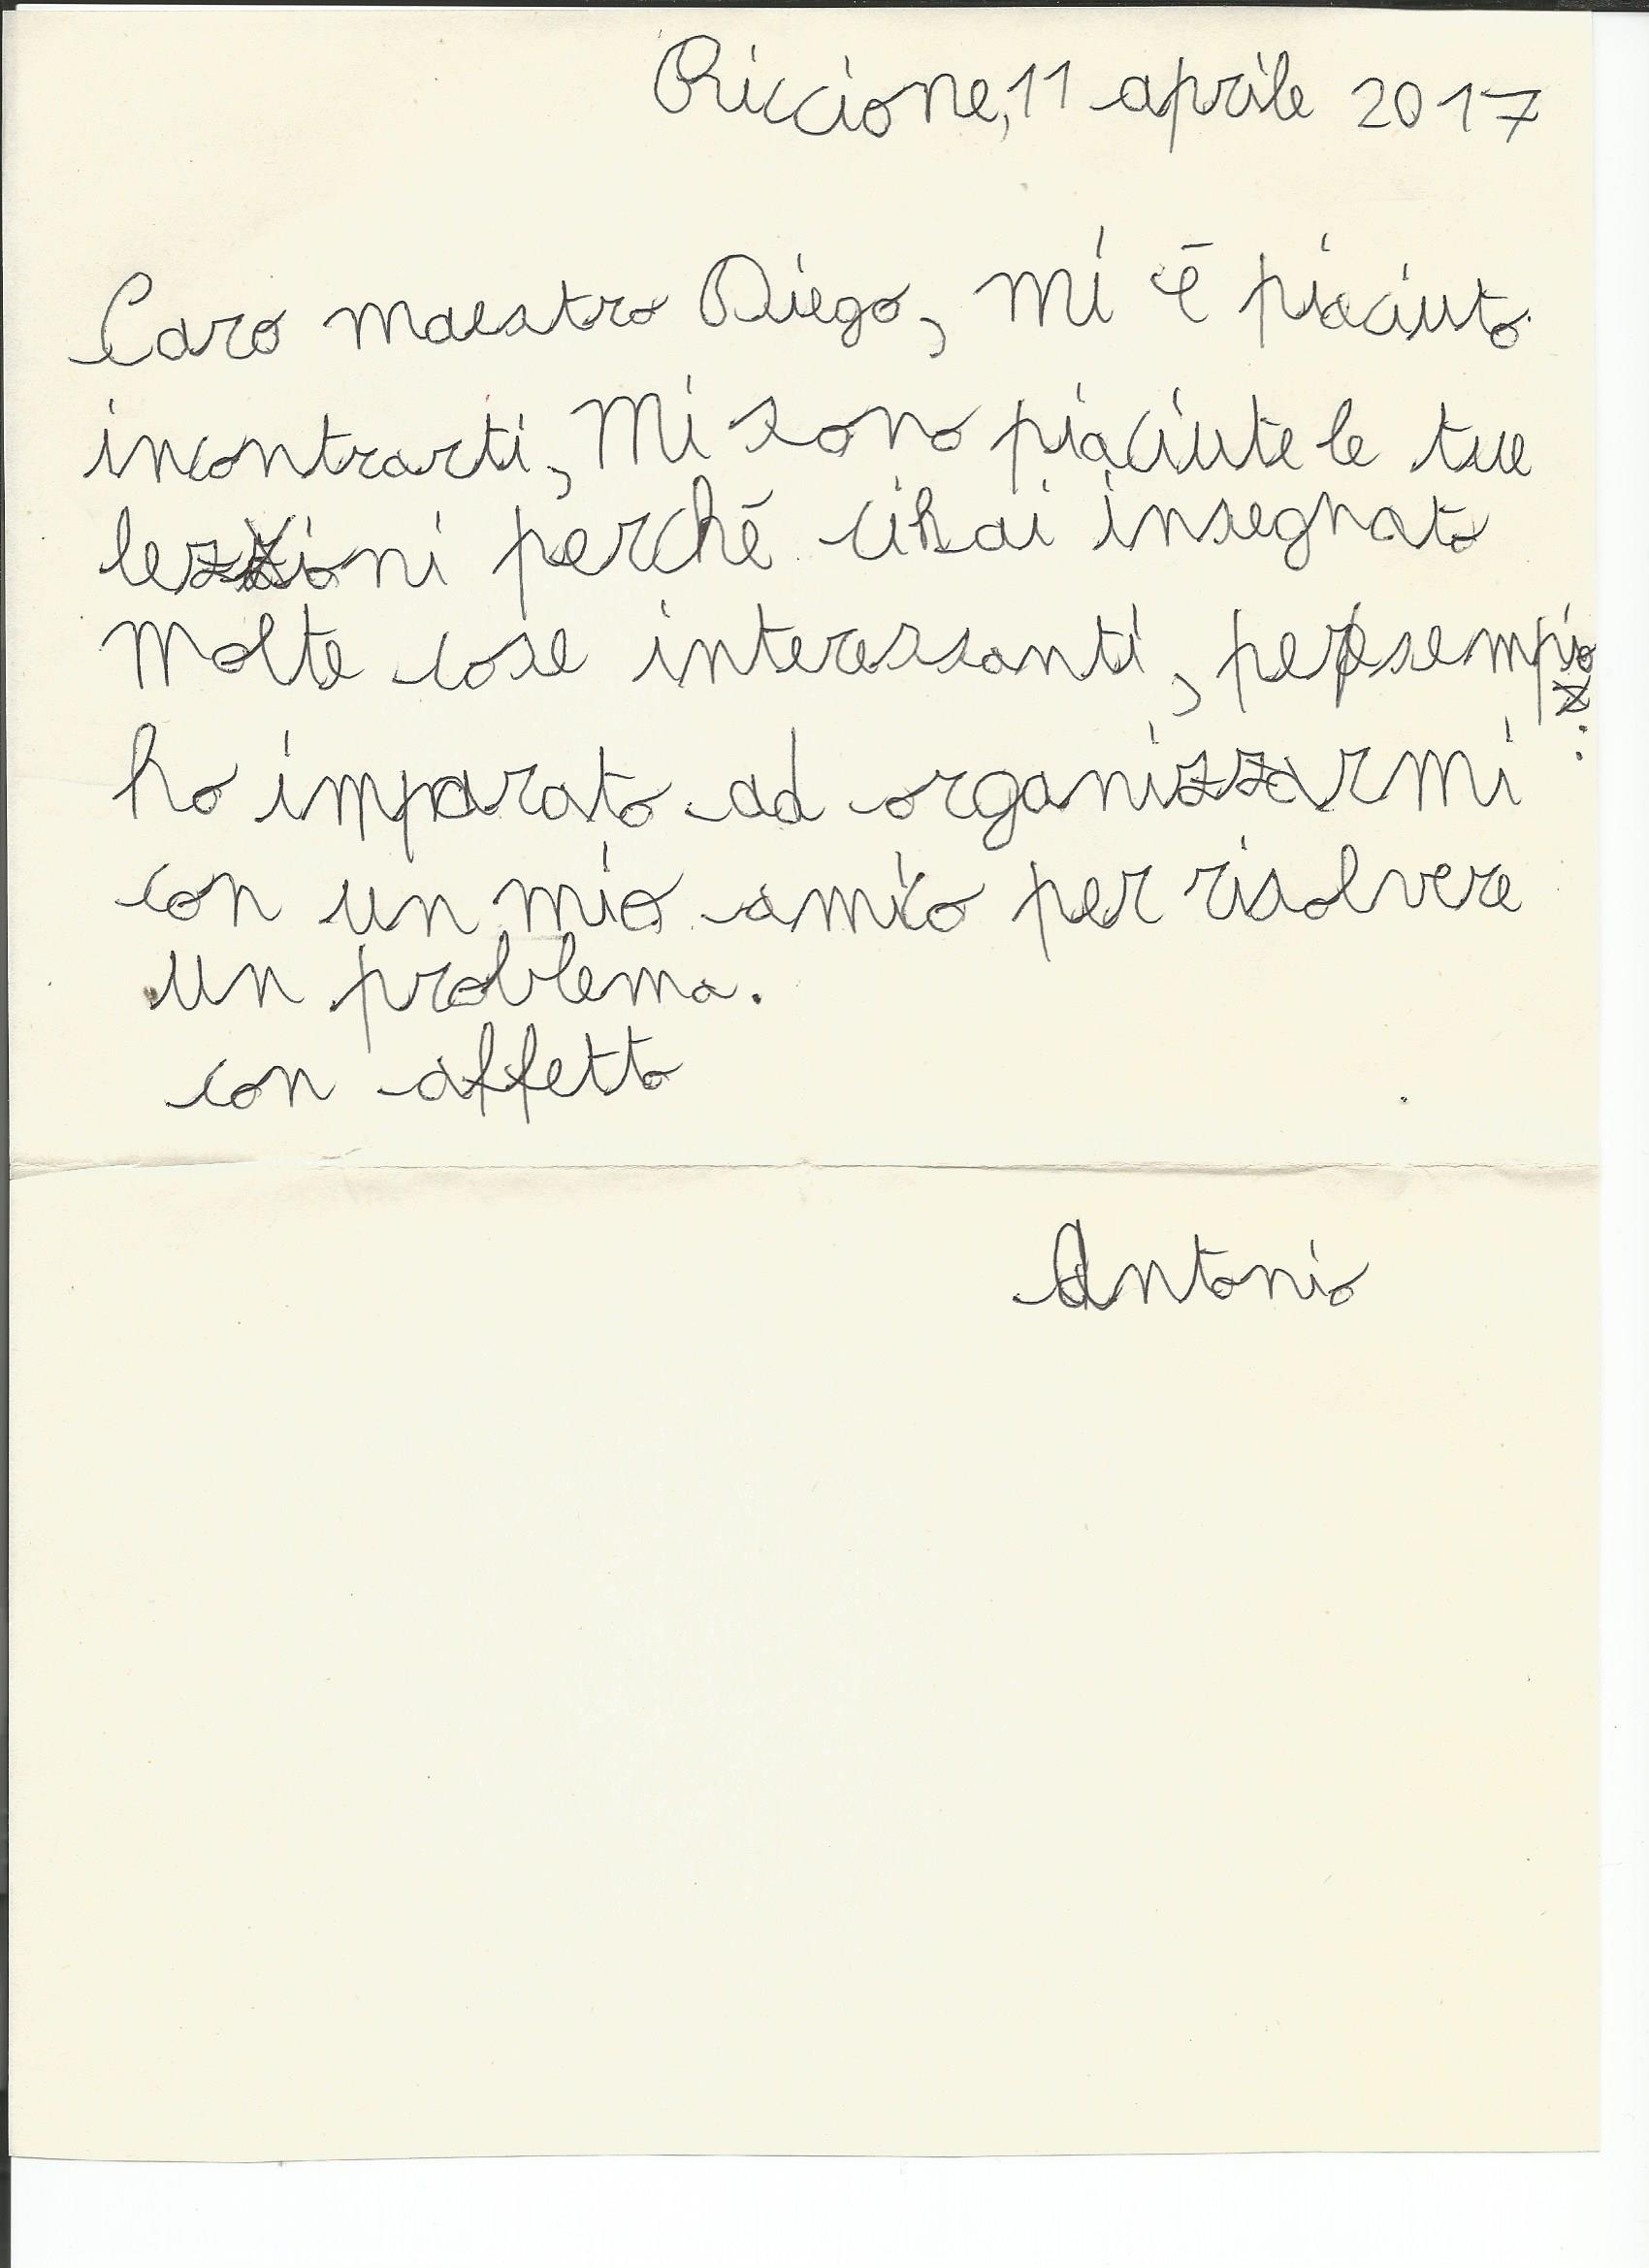 Riccione, 11 aprile 2017
Caro maestro Diego, mi è piaciuto
incontrarti, Mi sono piaciute le tue
lezioni perchē ci hai insegnato
molte cose interessanti, per esempio:
ho imparato ad organizzarmi
con un mio amico per risolvere
un problema.
con affetto
Antonio